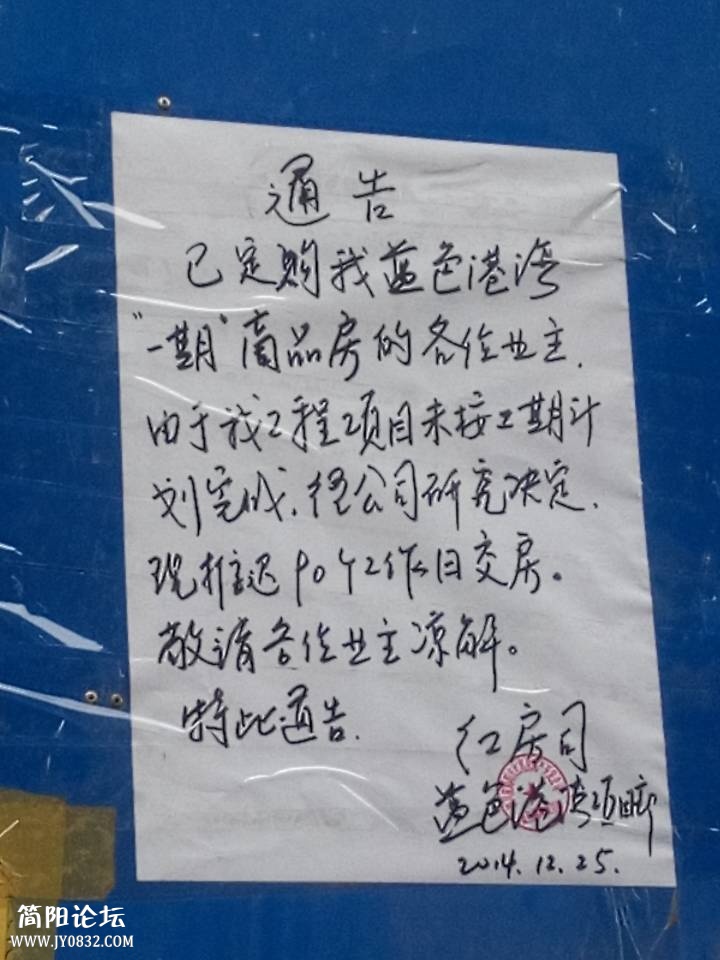 通告
已定购我蓝色港湾
“一期”商品房的各位业主.
由于我工程项目未按工期计
划完成.经公司研究决定.
现推迟90个工作日交房。
敬请各位业主凉解。
特此通告.
红房司
蓝色港湾项目部
2014.12.25.
简阳论坛
WWW.JY0832.COM